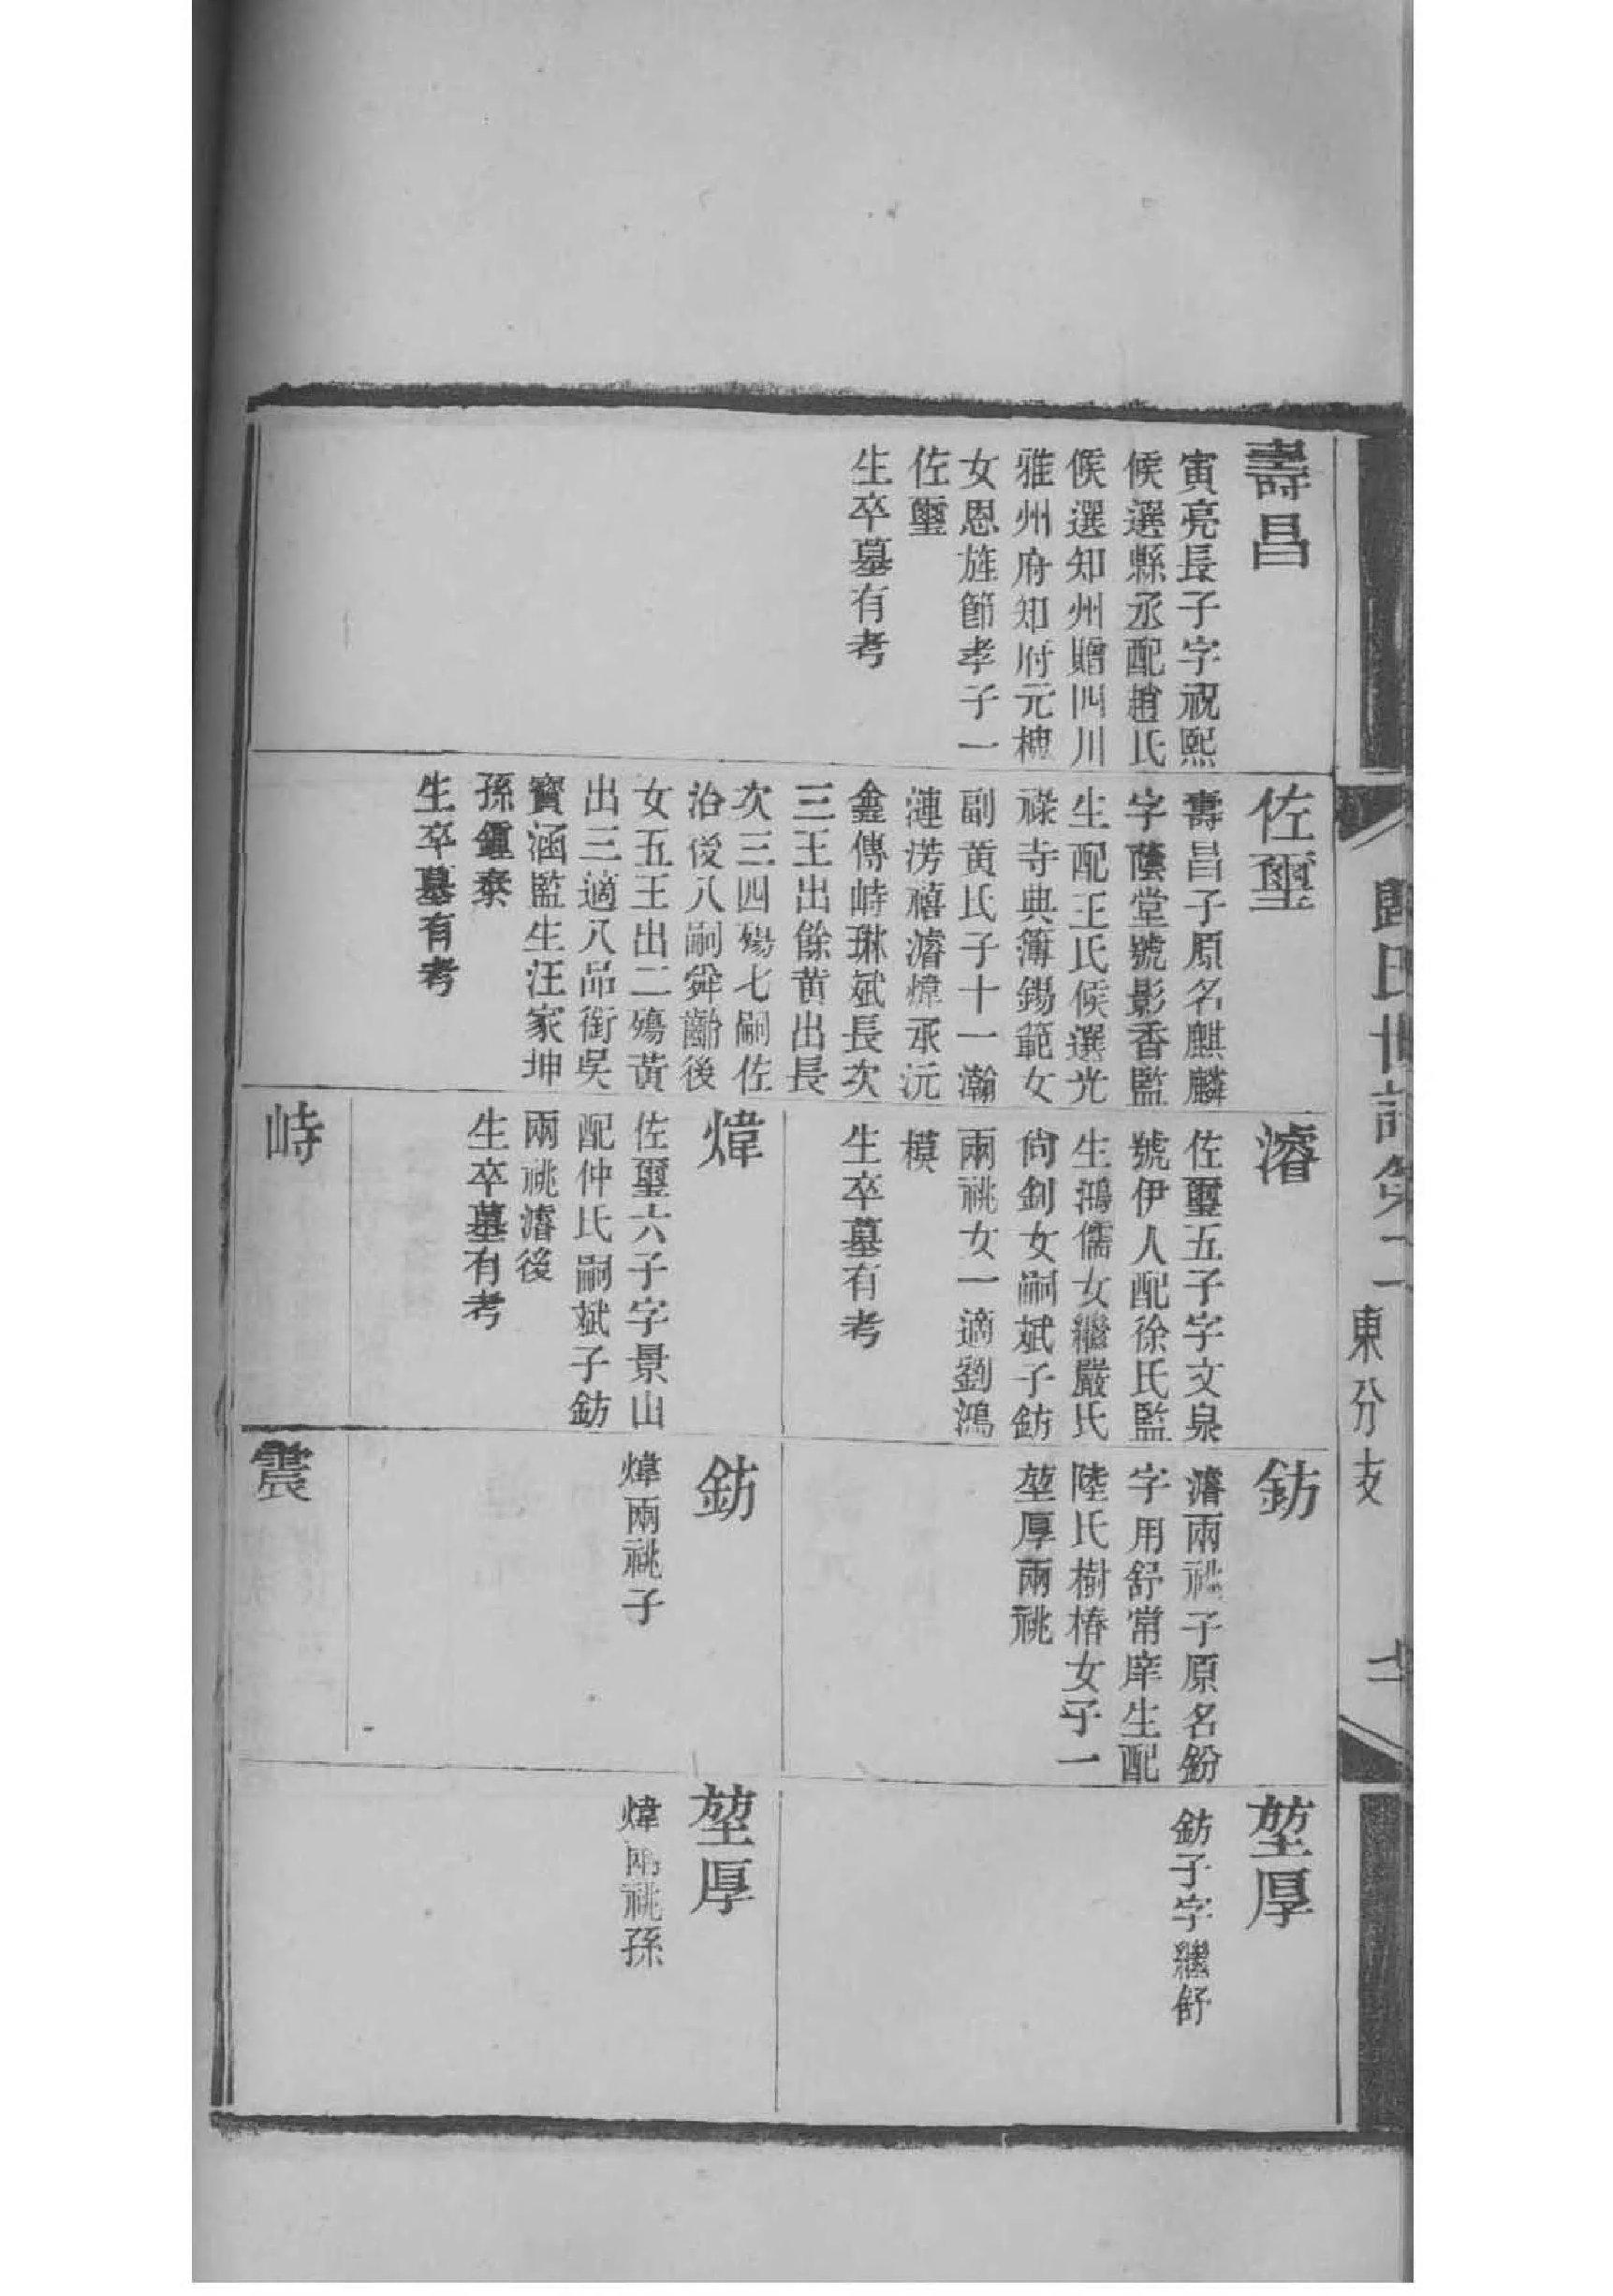 歸氏世譜第二
東分支
壽昌
寅亮長子字祝熙
候選縣丞配趙氏
候選知州贈四川
雅州府知府元楗
女恩旌節孝子一
佐璽
生卒墓有考
佐璽
壽昌子原名麒麟
字蔭堂號影香監
生配王氏候選光
祿寺典簿錫範女
副黃氏子十一瀚
漣涝禧濬煒承沅
鑫傳峙琳斌長次
三王出餘黃出長
次三四殤七嗣佐
治後八嗣舜齡後
女五王出二殤黃
出三適八品銜吳
寶涵監生汪家坤
孫鍾泰
生卒墓有考
濬
佐璽五子字文泉
號伊人配徐氏監
生鴻儒女繼嚴氏
尙釗女嗣斌子鈁
兩祧女一適劉鴻
模
生卒墓有考
煒
佐璽六子字景山
配仲氏嗣斌子鈁
兩祧濬後
生卒墓有考
峙
鈁
濬兩祧子原名鈖
字用舒常庠生配
陸氏樹椿女子一
堃厚兩祧
鈁
煒兩祧子
震
堃厚
鈁子字繼舒
堃厚
煒兩祧孫